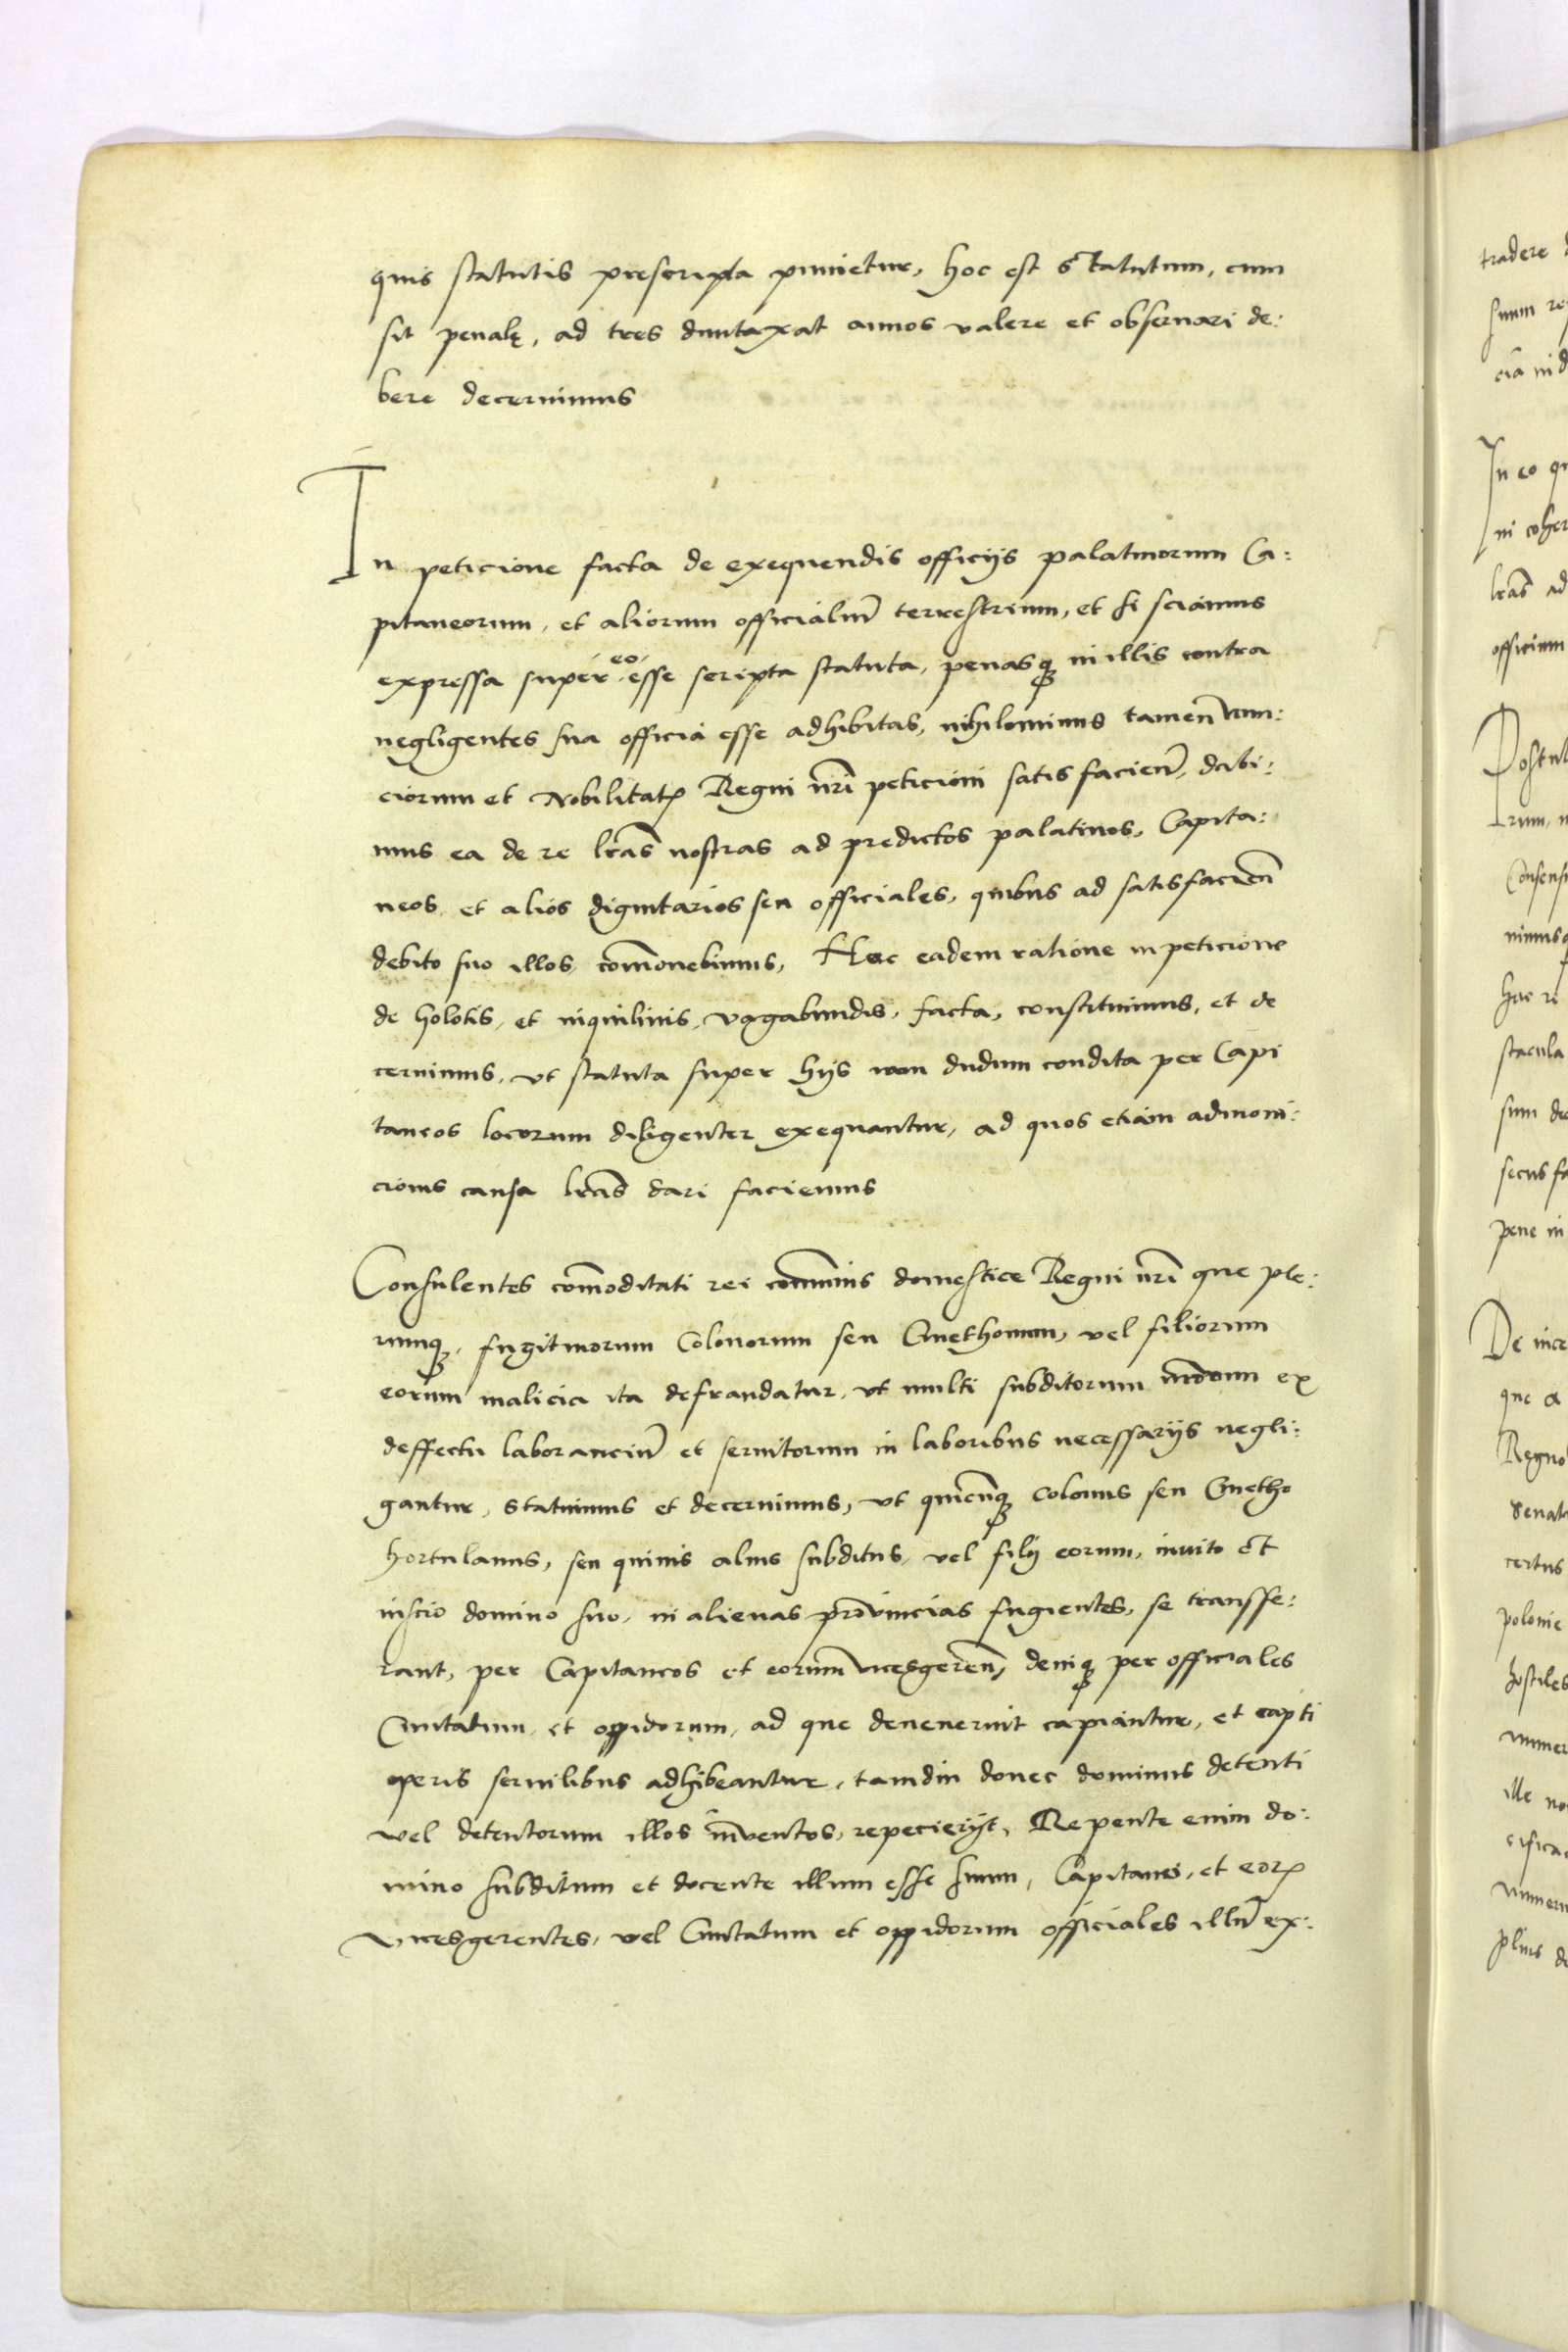 quis statutis prescripta punietur, hoc est statutum, cum
sit penalę, ad tres duntaxat annos valere et observari de:
bere decernimus
In peticione facta de exequendis officijs palatinorum Ca:
pitaneorum, et aliorum officialiũ terrestrium, et si sciamus
eo
expressa super esse scripta statuta, penasq3 in illis contra
negligentes sua officia esse adhibitas, nihilominus tamen nun:
ciorum et Nobilitatꝭ Regni nr̃i peticioni satis facieñ, dabi:
mus ea de re lr̃as nostras ad predictos palatinos, Capita:
neos et alios dignitarios seu officiales, quibus ad satisfacieñ
debito suo illos com̃onebimus, Hac eadem ratione in peticione
de holotis, et inquilinis, vagabundis, facta, constituimus, et de
cernimus, ut statuta super hijs iam dudum condita per Capi
taneos locorum diligenter exequantur, ad quos etiam admoni:
cionis causa lr̃as dari faciemus
Consulentes com̃oditati rei com̃unis domestice Regni nr̃i que ple:
rumq3, fugitivorum Colonorum seu Cmethonum, vel filiorum
eorum malicia ita defraudatur, ut multi subditorum nr̃orum ex
deffectu laboranciũ et servitorum in laboribus necessarijs negli:
gantur, statuimus et decernimus, ut quicũq3 colonus seu Cmetho
hortulanus, seu quivis alius subditus, vel filij eorum, invito et
inscio domino suo, in alienas provincias fugientes, se transfe:
rant, per Capitaneos et eorum vicesgereñ, deniq3 per officiales
Civitatum, et oppidorum, ad que devenerint capiantur, et capti
operis servilibus adhibeantur, tamdiu donec dominus detenti
vel detentorum illos inventos, repecierijt, Repetente enim do:
mino subditum et docente illum esse suum, Capitanei, et eorꝭ
vicesgerentes, vel Civitatum et oppidorum officiales illũ ex: